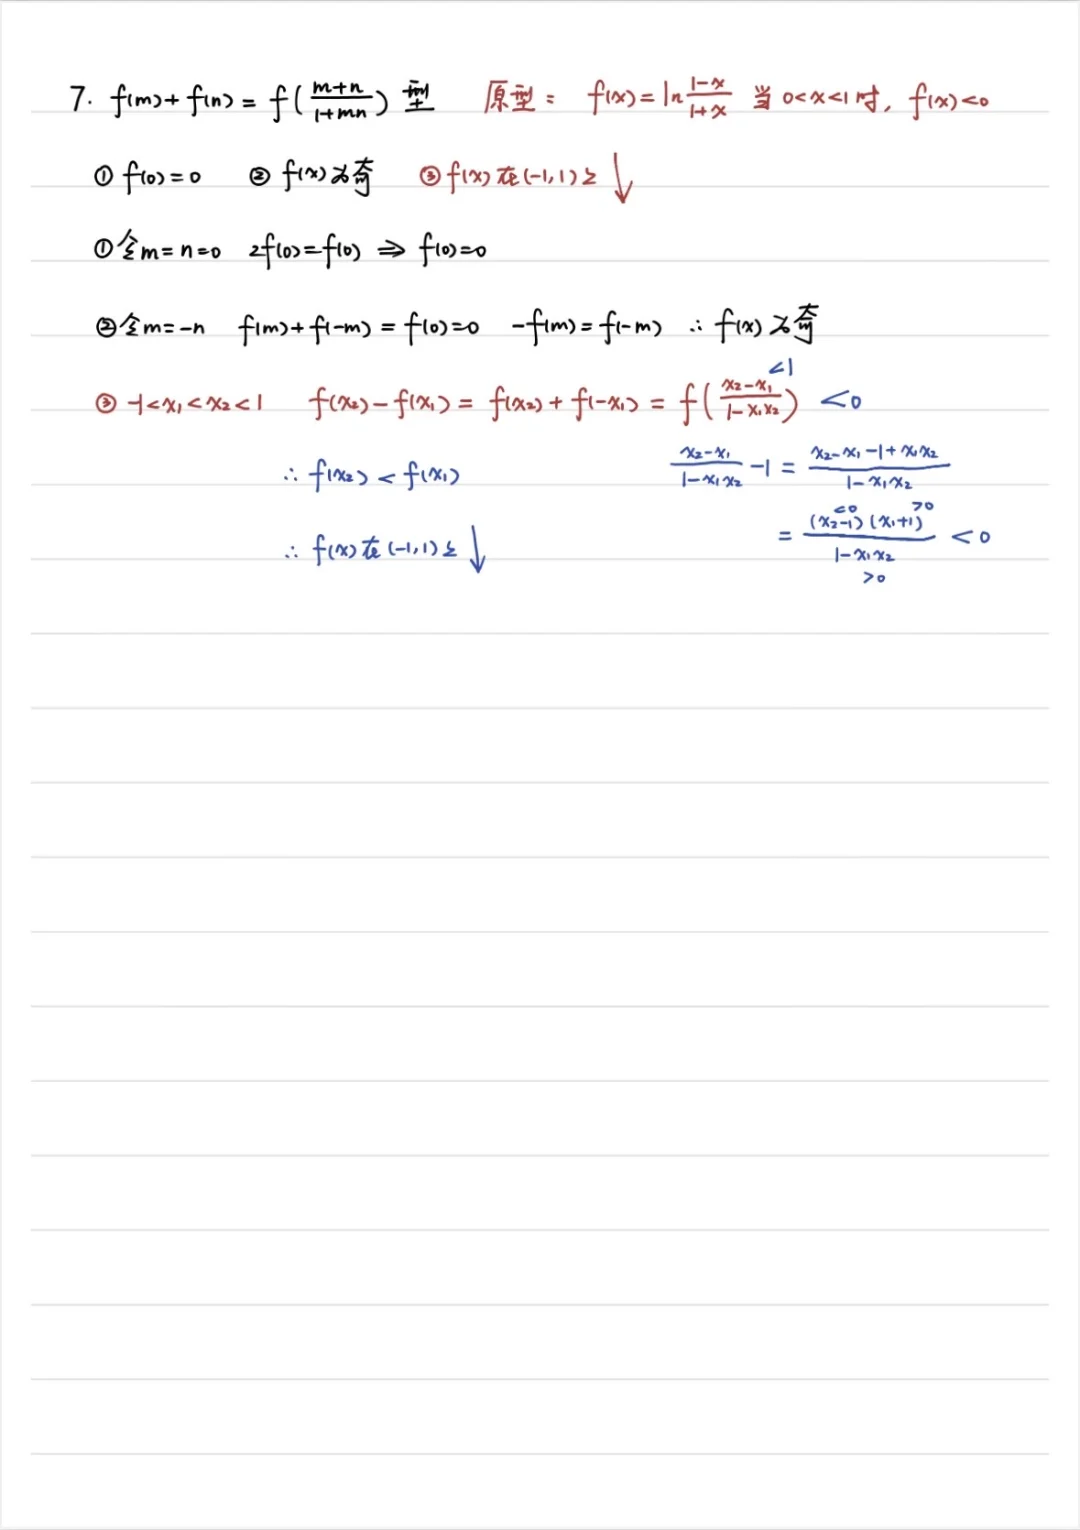 7. f(m)+f(n)=f(\frac{m+n}{1+mn})型 原型: f(x)=ln\frac{1-x}{1+x} 当0<x<1时, f(x)<0
① f(0)=0 ② f(x)为奇 ③ f(x)在(-1,1)上↓
①令m=n=0 2f(0)=f(0) ⇒ f(0)=0
②令m=-n f(m)+f(-m)=f(0)=0 -f(m)=f(-m) ∴ f(x)为奇
③ -1<x₁<x₂<1 f(x₂)-f(x₁)=f(x₂)+f(-x₁)=f(\frac{x₂-x₁}{1-x₁x₂}) <0
<1
∴ f(x₂)<f(x₁) \frac{x₂-x₁}{1-x₁x₂}-1=\frac{x₂-x₁-1+x₁x₂}{1-x₁x₂}
<0 >0
∴ f(x)在(-1,1)上↓ =\frac{(x₂-1)(x₁+1)}{1-x₁x₂}<0
>0